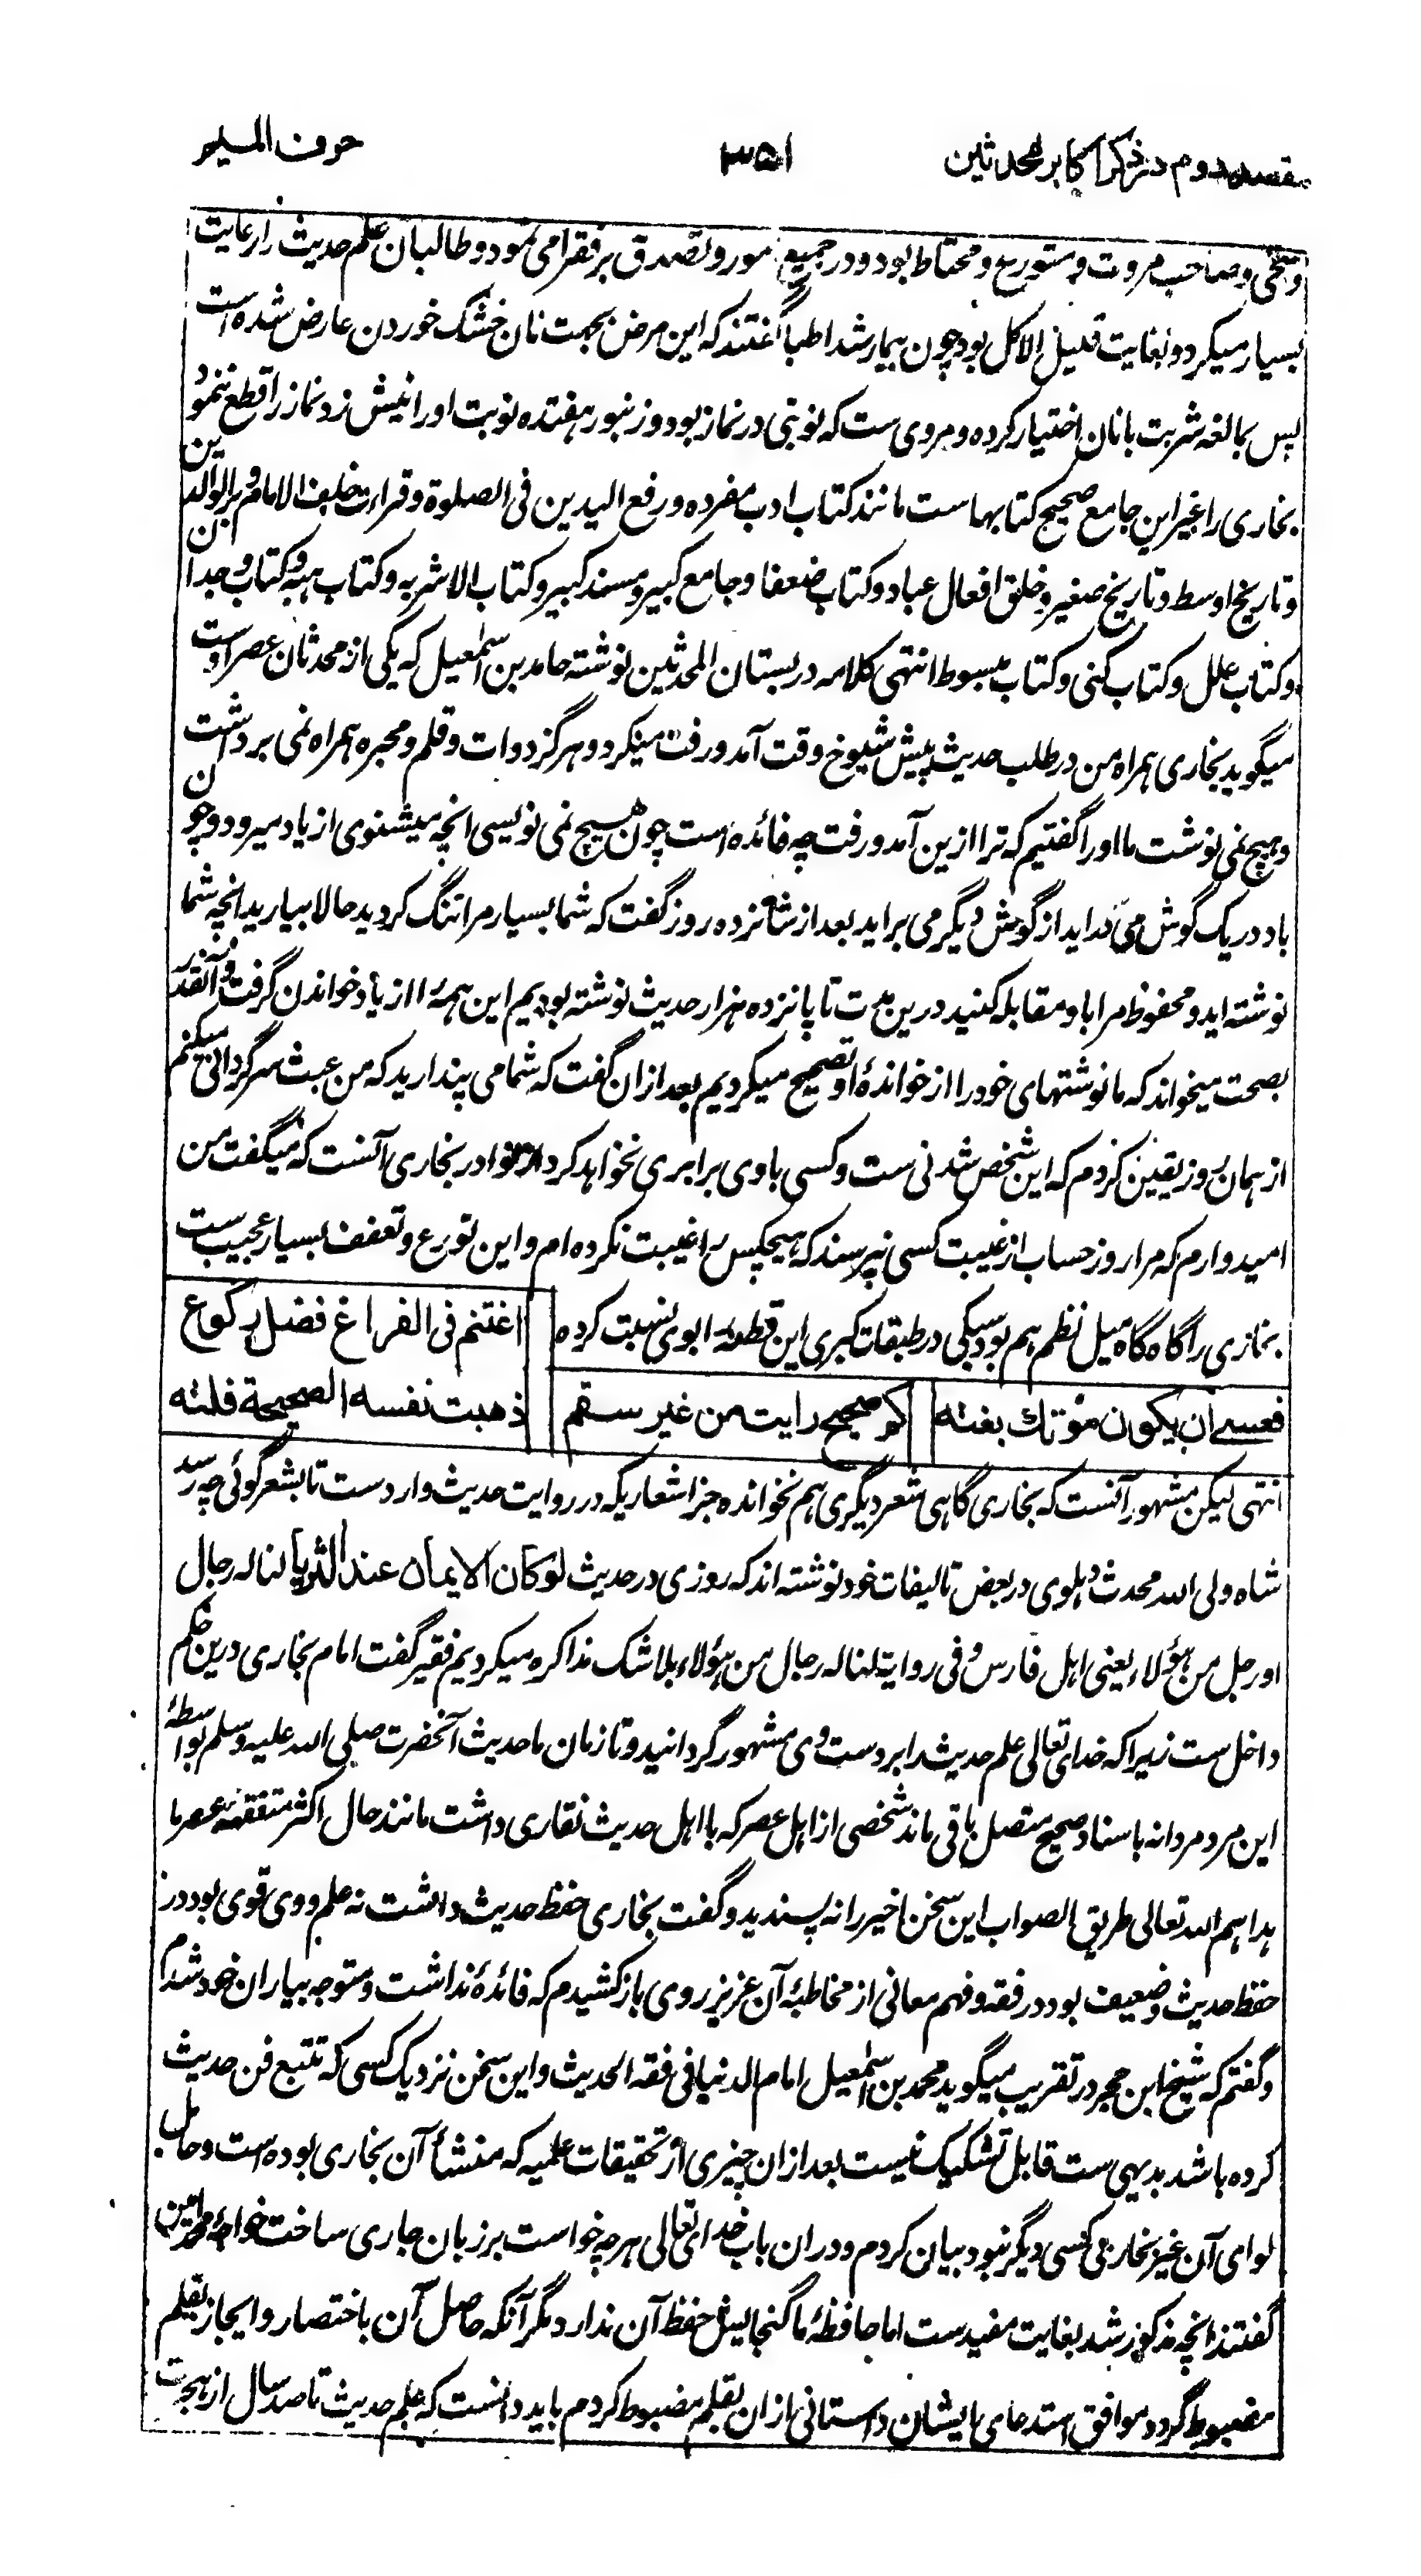 مقصد دوم در ذکر اکابر محدثین ۳۵۱ حرف المیم
و سخی و صاحب مروت و متورع و محتاط بود و در جمیع امور و تصدق بر فقرا می نمود و طالبان علم حدیث را رعایت
بسیار میکرد و بغایت قلیل الاکل بود چون بیمار شد اطبا گفتند که این مرض بجهت نان خشک خوردن عارض شده است
پس بمبالغه شربت با نان اختیار کرده و مروی ست که نوبتی در نماز بود و زنبور هفتده نوبت او را نیش زد نماز را قطع ننمود
بخاری را غیر این جامع صحیح کتابهاست مانند کتاب ادب مفرد و رفع الیدین فی الصلوة و قراءت خلف الامام و بر الوالدین
و تاریخ اوسط و تاریخ صغیر و خلق افعال عباد و کتاب ضعفا و جامع کبیر و مسند کبیر و کتاب الاشربه و کتاب هبه و کتاب وحدان
و کتاب علل و کتاب کنی و کتاب مبسوط انتهی کلامه در بستان المحدثین نوشته حامد بن اسمعیل که یکی از محدثان عصر اوست
میگوید بخاری همراه من در طلب حدیث پیش شیوخ وقت آمد و رفت میکرد و هرگز دوات و قلم و محبره همراه نمی برداشت
و هیچ نمی نوشت ما او را گفتیم که ترا ازین آمد و رفت چه فائده است چون هیچ نمی نویسی انچه میشنوی از یاد میرود و چون
باد در یک گوش می درآید از گوش دیگر می براید بعد از شانزده روز گفت که شما بسیار مرا تنگ کردید حالا بیارید انچه شما
نوشته اید و محفوظ مرا با و مقابله کنید درین مدت تا پانزده هزار حدیث نوشته بودیم این همه را از یاد خواندن گرفت و آنقدر
بصحت میخواند که ما نوشتهای خود را از خوانده او تصحیح میکردیم بعد ازان گفت که شما می پندارید که من عبث سرگردانی میکنم
از همان روز یقین کردم که این شخص شدنی ست و کسی با وی برابری نخواهد کرد از نوادر بخاری آنست که میگفت من
امیدوارم که مرا روز حساب از غیبت کسی نپرسند که هیچکس را غیبت نکرده ام و این تورع و تعفف بسیار عجیب ست
بخاری را گاه گاه میل نظم هم بود سبکی در طبقات کبری این قطعه ابوی نسبت کرده اغتنم فی الفراغ فضل رکوع
فعسی ان یکون موتک بغته کم صحیح رایت من غیر سقم ذهبت نفسه الصحیحة فلته
انتهی لیکن مشهور آنست که بخاری گاهی شعر دیگری هم نخوانده جز اشعاریکه در روایت حدیث وارد ست تا بشعرگوئی چه رسد
شاه ولی الله محدث دهلوی در بعض تالیفات خود نوشته اند که روزی در حدیث لو کان الایمان عند الثریا لناله رجال
او رجل من هؤلاء یعنی اهل فارس و فی روایة لناله رجال من هؤلاء بلا شک مذاکره میکردیم فقیر گفت امام بخاری درین حکم
داخل ست زیرا که خدای تعالی علم حدیث را بر دست وی مشهور گردانید و تا زمان ما حدیث آنحضرت صلی الله علیه وسلم بواسطه
این مرد مردانه باسناد صحیح متصل باقی ماند شخصی از اهل عصر که با اهل حدیث نقاری داشت مانند حال اکثر متفقهه عصر ما
هداهم الله تعالی طریق الصواب این سخن اخیر را نه پسندید و گفت بخاری حفظ حدیث داشت نه علم و وی قوی بود در
حفظ حدیث و ضعیف بود در فقه و فهم معانی از مخاطبه آن عزیز روی باز کشیدم که فائده نداشت و متوجه بیاران خود شدم
و گفتم که شیخ ابن حجر در تقریب میگوید محمد بن اسمعیل امام الدنیا فی فقه الحدیث و این سخن نزدیک کسی که تتبع فن حدیث
کرده باشد بدیهی ست قابل تشکیک نیست بعد ازان چیزی از تحقیقات علمیه که منشأ آن بخاری بوده است و حامل
لوای آن غیر بخاری کسی دیگر نبود بیان کردم و دران باب خدای تعالی هر چه خواست بر زبان جاری ساخت خواجه محمد امین
گفتند انچه مذکور شد بغایت مفیدست اما حافظه ما گنجایش حفظ آن ندارد مگر آنکه حاصل آن باختصار و ایجاز بقلم
مضبوط گردد موافق استدعای ایشان داستانی ازان بقلم مضبوط کردم باید دانست که علم حدیث تا صد سال از هجرت